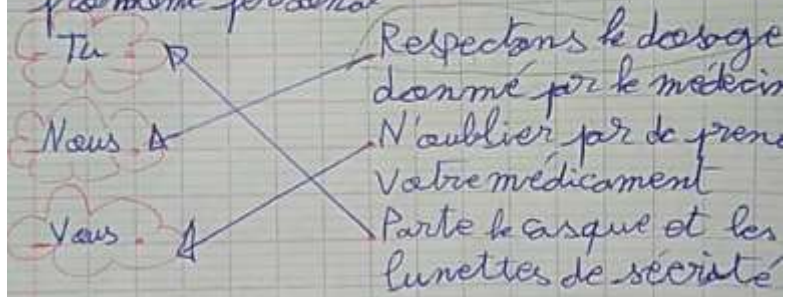 Tu
Respectons le dosage
donné par le médecin
Nous
N'oublier par de pren
Votre médicament
Vous
Porte le casque et les
lunettes de sécrité